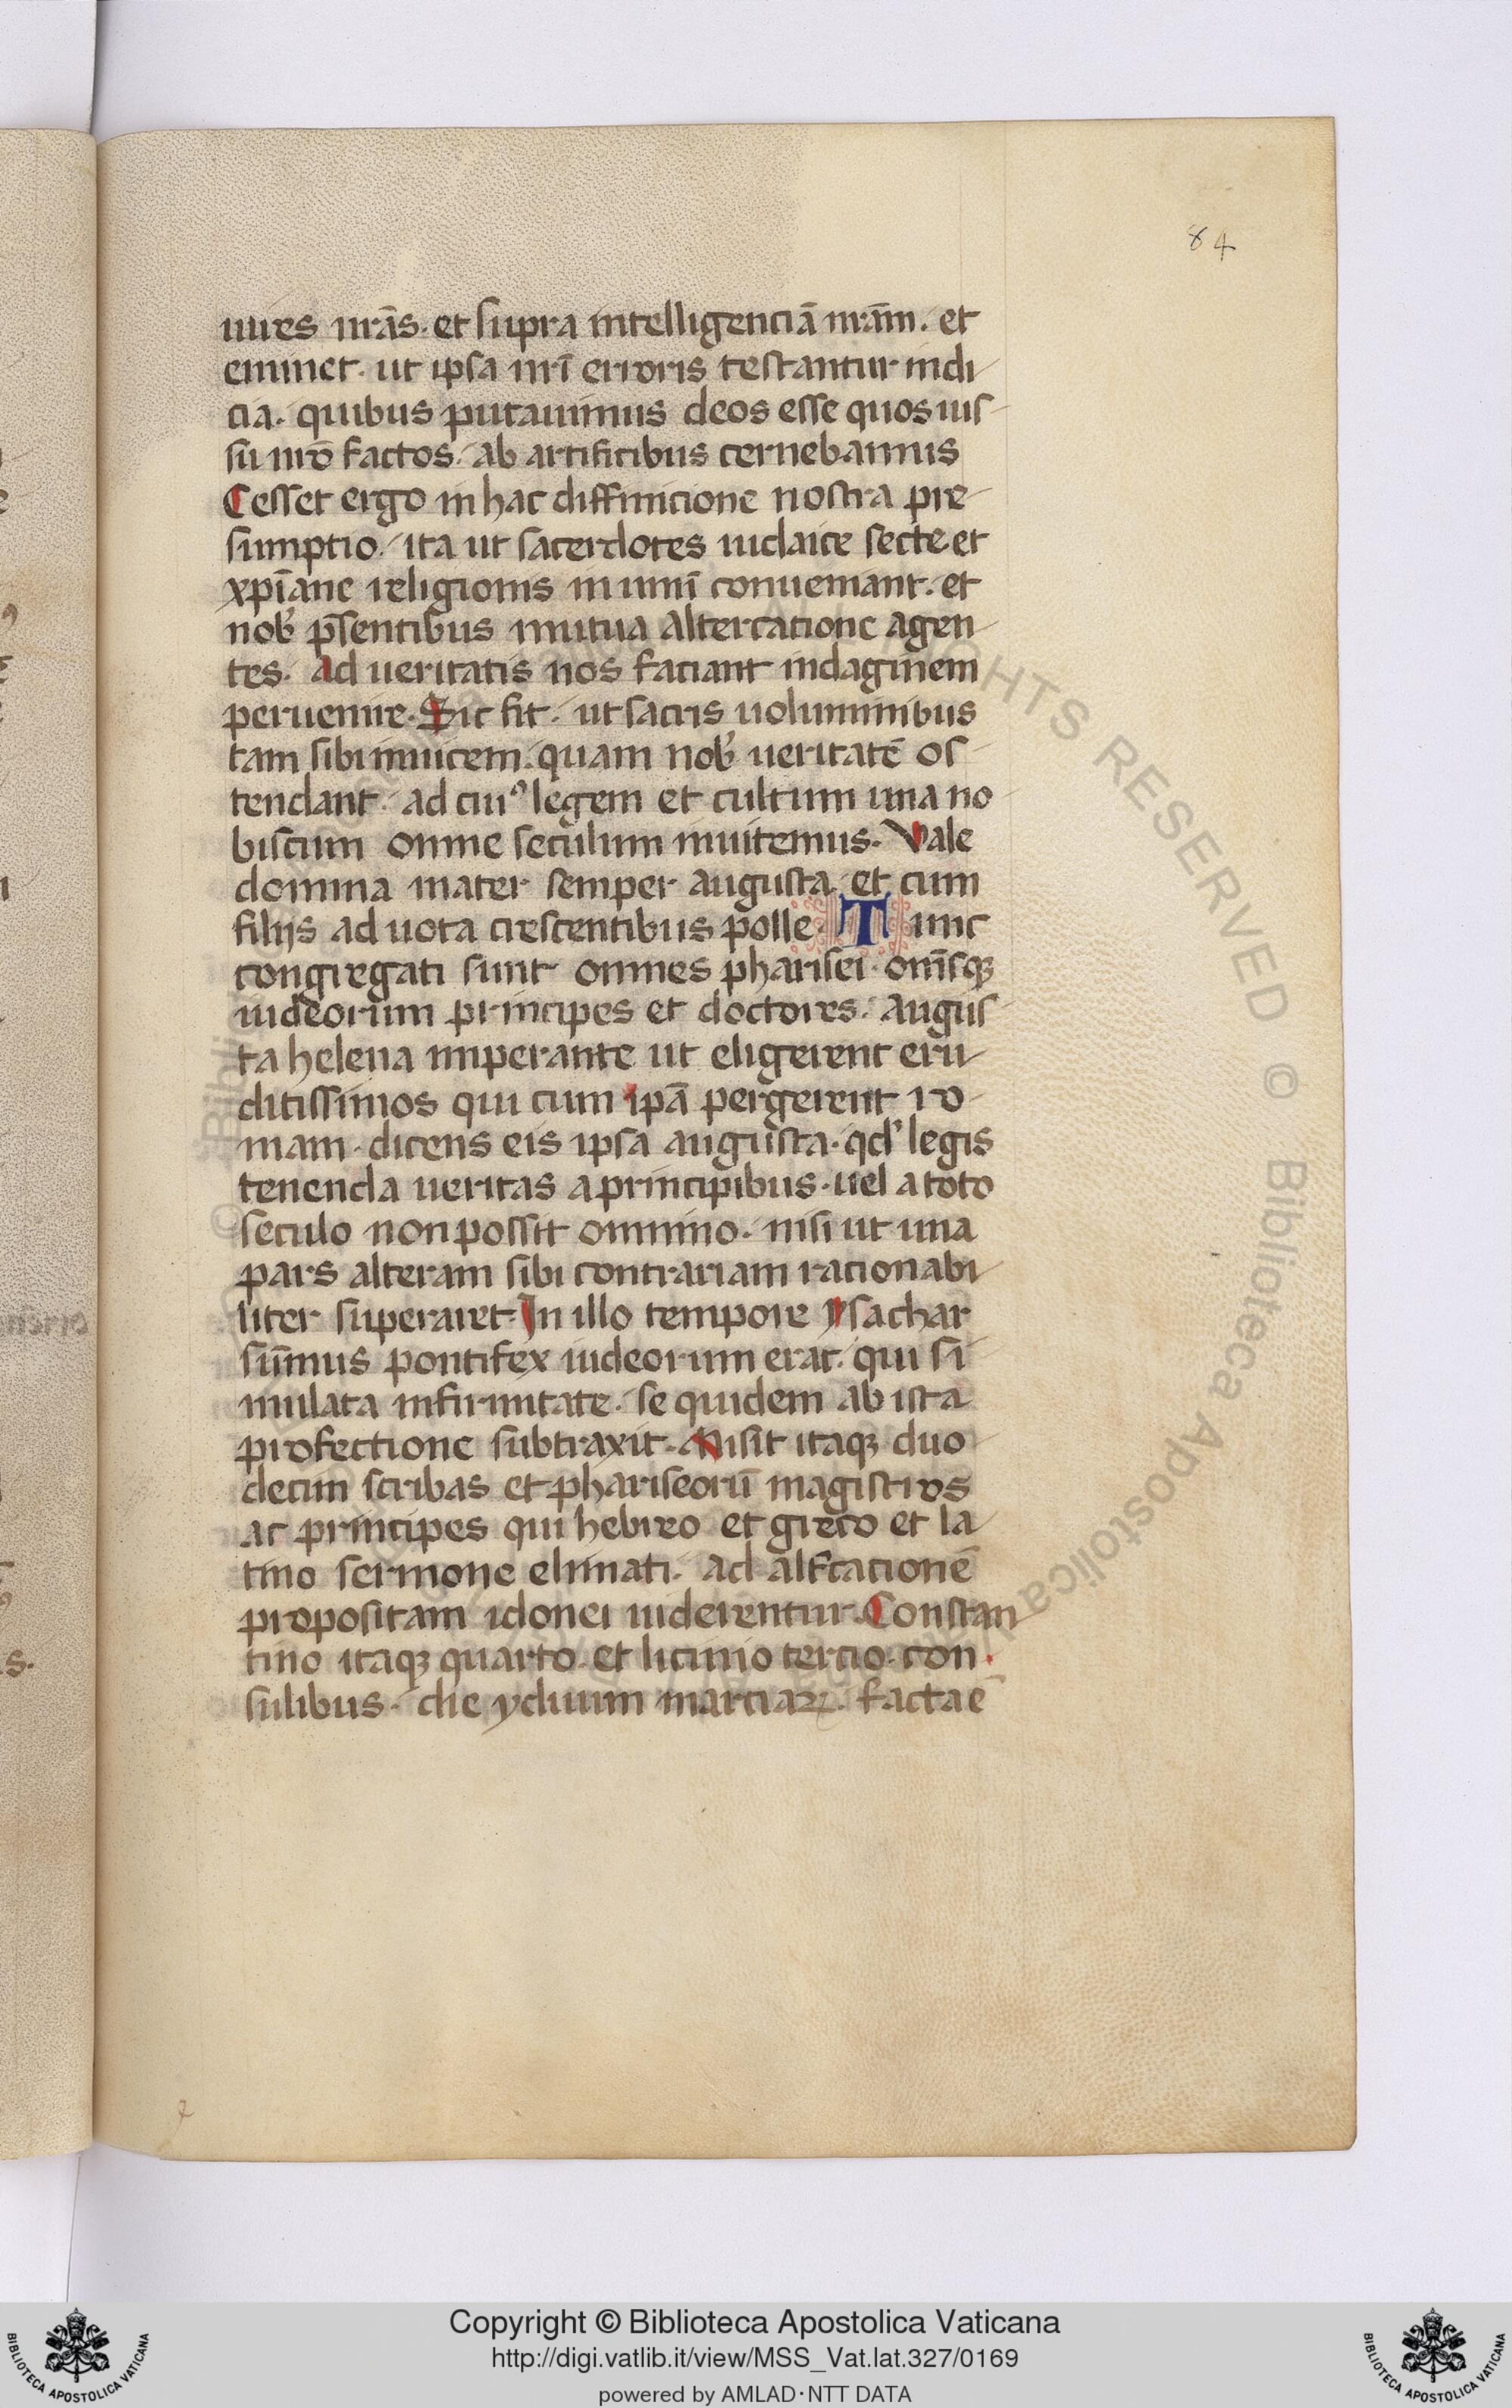 84
uires nr̄as. et supra intelligenciā nr̄am. et
eminet. ut ipsa nr̄i erroris testantur indi
cia. quibus putauimus deos esse quos ius
su nr̄o factos. ab artificibus cernebamus
Cesset ergo in hac diffinicione nostra pre
sumptio. ita ut sacerdotes iudaice secte et
xp̄iane religionis in unū conueniant. et
nob̓ p̄sentibus mutua altercatione agen
tes. Ad ueritatis nos faciant indaginem
peruenire. Sic fit. ut sacris uoluminibus
tam sibi inuicem. quam nob̓ ueritatē os
tendant. ad cuiꝰ legem et cultum una no
biscum omne seculum inuitemus. Vale
domina mater semper augusta. et cum
filijs ad uota crescentibus polle. Tunc
congregati sunt omnes pharisei. om̄isqꝫ
iudeorum principes et doctores. augus
ta helena imperante ut eligerent eru
ditissimos qui cum ipā pergerent ro
mam. dicens eis ipsa augusta. qd̓ legis
tenenda ueritas a principibus. uel a toto
seculo non possit omnino. nisi ut una
pars alteram sibi contrariam racionabi
liter superaret. In illo tempore ysachar
sūmus pontifex iudeorum erat. qui si
mulata infirmitate. se quidem ab ista
profectione subtraxit. Misit itaqꝫ duo
decim scribas et phariseorū magistros
ac principes qui hebreo et greco et la
tino sermone elimati. ad alt̄cacionē
propositam idonei uiderentur. Constan
tino itaqꝫ quarto. et licinio tercio. con
sulibus. die yduum marciaꝝ. facta ē
ALL RIGHTS RESERVED © Biblioteca Apostolica
Copyright © Biblioteca Apostolica Vaticana
http://digi.vatlib.it/view/MSS_Vat.lat.327/0169
powered by AMLAD·NTT DATA
BIBLIOTECA APOSTOLICA VATICANA
BIBLIOTECA APOSTOLICA VATICANA